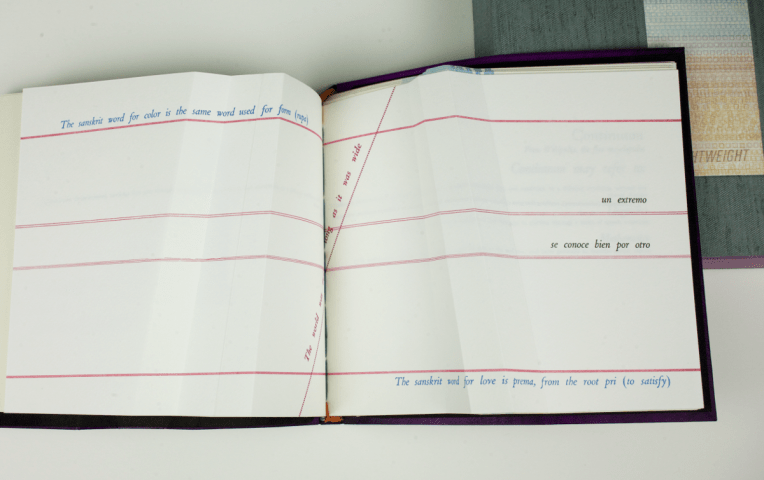 The sanskrit word for color is the same word used for form (rupa)
The words
as it was wide
un extremo
se conoce bien por otro
The sanskrit word for love is prema, from the root pri (to satisfy)
HTWEIGHT